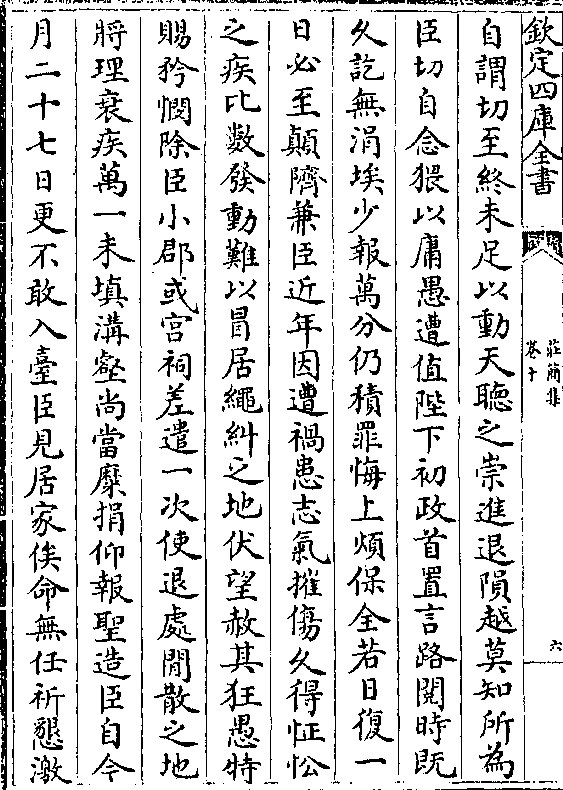 欽定四庫全書
莊簡集
卷十
六
自謂切至終未足以動天聽之崇進退隕越莫知所為
臣切自念猥以庸愚遭值陛下初政首置言路閱時既
久訖無涓埃少報萬分仍積罪悔上煩保全若日復一
日必至顛隮兼臣近年因遭禍患志氣摧傷久得怔忪
之疾比數發動難以冒居繩糾之地伏望赦其狂愚特
賜矜憫除臣小郡或宫祠差遣一次使退處閒散之地
將理衰疾萬一未填溝壑尚當糜捐仰報聖造臣自今
月二十七日更不敢入臺臣見居家俟命無任祈懇激